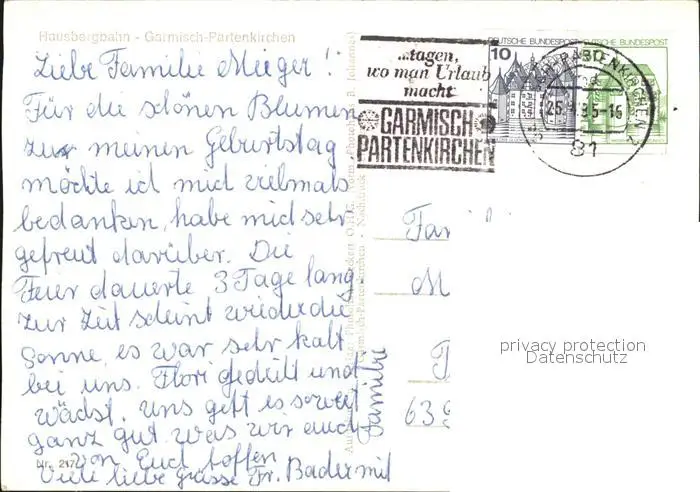 Hausbergbahn - Garmisch-Partenkirchen
Liebe Familie Mieger!
Für die schönen Blumen
zur meinen Geburtstag
möchte ich mich vielmals
bedanken, habe mich sehr
gefreut darüber. Die
Feier dauerte 3 Tage lang.
Zur Zeit scheint wieder die
Sonne, es war sehr kalt
bei uns. Flori gedeiht und
wächst. Uns geht es soweit
ganz gut was wir auch
von Euch hoffen
Viele liebe grüsse Fr. Bader mit
Familie
Nr. 217
...tagen,
wo man Urlaub
macht
GARMISCH
PARTENKIRCHEN
10
DEUTSCHE BUNDESPOST
DEUTSCHE BUNDESPOST
PARTENKIRCHEN
81
Fam
M
639
privacy protection
Datenschutz